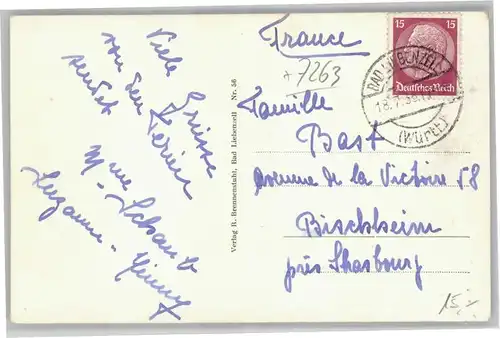 Viele Grüsse
von den Ferien
sendet
Mme Schaub
Suzanne -
Verlag R. Bremenstuhl, Bad Liebenzell Nr. 56
France
+7263
Familie
Bast
avenue de la Victoire 58
Bischheim
près Strasbourg
15 15
Deutsches Reich
BAD LIEBENZELL
18.7.38
(WÜRTT)
15,-